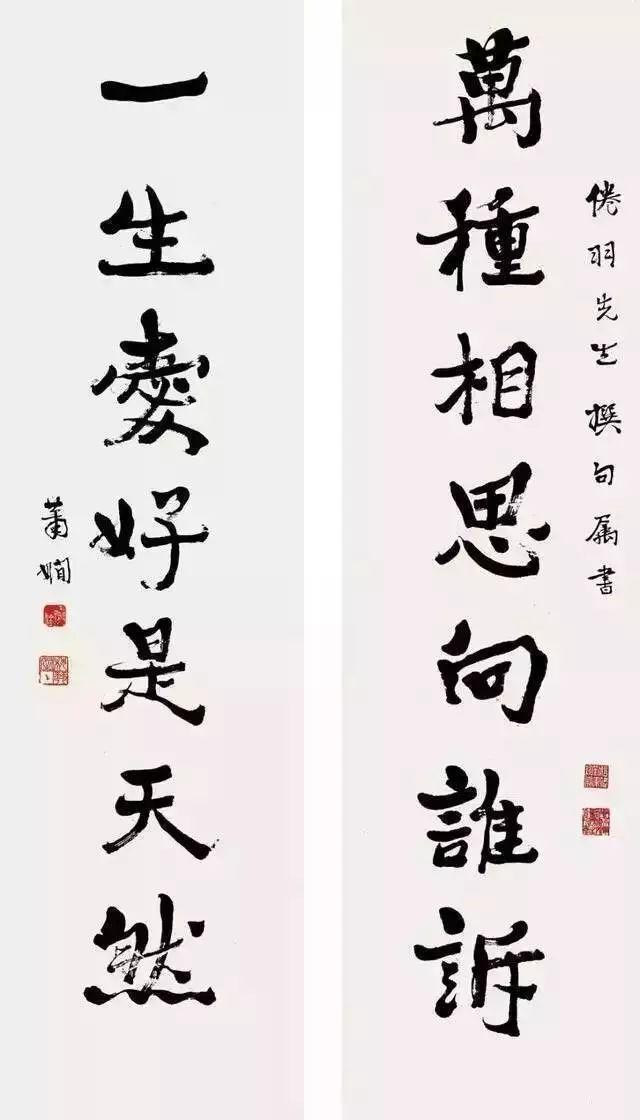 倦羽先生撰句属書
萬種相思向誰訴
一生愛好是天然
蕭嫻